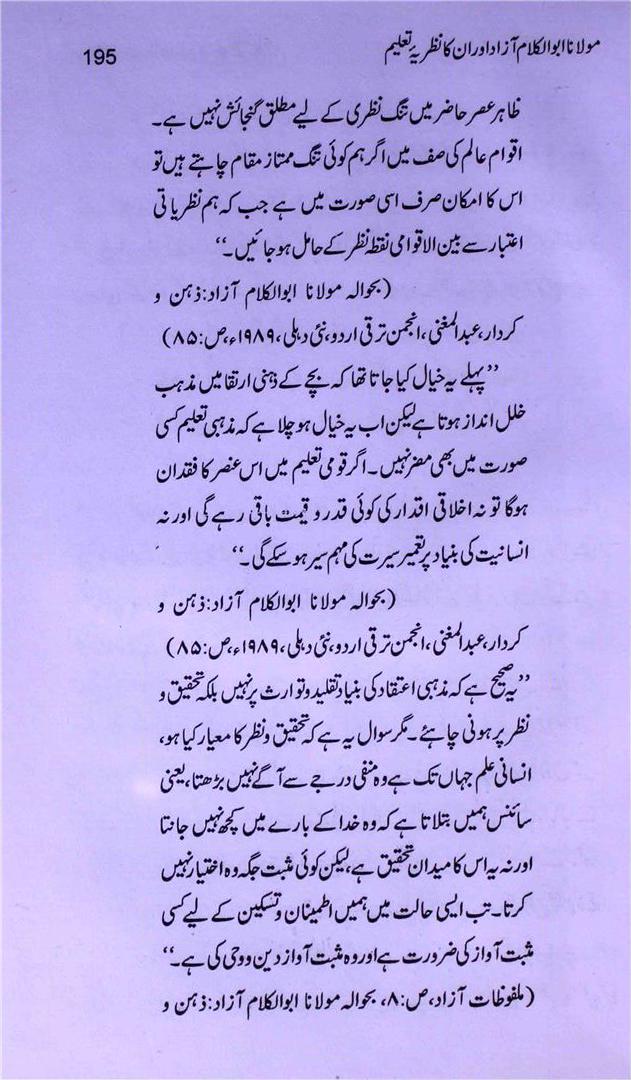 مولانا ابوالکلام آزاد اور ان کا نظریۂ تعلیم 195
ظاہر عصر حاضر میں تنگ نظری کے لیے مطلق گنجائش نہیں ہے۔
اقوام عالم کی صف میں اگر ہم کوئی تنگ ممتاز مقام چاہتے ہیں تو
اس کا امکان صرف اسی صورت میں ہے جب کہ ہم نظریاتی
اعتبار سے بین الاقوامی نقطۂ نظر کے حامل ہوجائیں۔‘‘
(بحوالہ مولانا ابوالکلام آزاد: ذہن و
کردار، عبدالمغنی، انجمن ترقی اردو، نئی دہلی، ۱۹۸۹ء، ص: ۸۵)
’’پہلے یہ خیال کیا جاتا تھا کہ بچے کے ذہنی ارتقا میں مذہب
خلل انداز ہوتا ہے لیکن اب یہ خیال ہو چلا ہے کہ مذہبی تعلیم کسی
صورت میں بھی مضر نہیں۔ اگر قومی تعلیم میں اس عنصر کا فقدان
ہوگا تو نہ اخلاقی اقدار کی کوئی قدر و قیمت باقی رہے گی اور نہ
انسانیت کی بنیاد پر تعمیر سیرت کی مہم سیر ہوسکے گی۔‘‘
(بحوالہ مولانا ابوالکلام آزاد: ذہن و
کردار، عبدالمغنی، انجمن ترقی اردو، نئی دہلی، ۱۹۸۹ء، ص: ۸۵)
’’یہ صحیح ہے کہ مذہبی اعتقاد کی بنیاد تقلید و توارث پر نہیں بلکہ تحقیق و
نظر پر ہونی چاہئے۔ مگر سوال یہ ہے کہ تحقیق و نظر کا معیار کیا ہو،
انسانی علم جہاں تک ہے وہ منفی درجے سے آگے نہیں بڑھتا، یعنی
سائنس ہمیں بتلاتا ہے کہ وہ خدا کے بارے میں کچھ نہیں جانتا
اور نہ یہ اس کا میدان تحقیق ہے، لیکن کوئی مثبت جگہ وہ اختیار نہیں
کرتا۔ تب ایسی حالت میں ہمیں اطمینان و تسکین کے لیے کسی
مثبت آواز کی ضرورت ہے اور وہ مثبت آواز دین و وحی کی ہے۔‘‘
(ملفوظات آزاد، ص: ۸، بحوالہ مولانا ابوالکلام آزاد: ذہن و